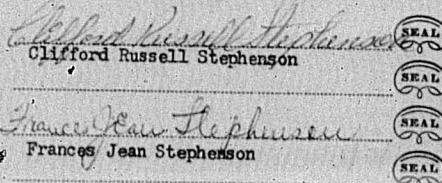 Clifford Russell Stephenson SEAL
Clifford Russell Stephenson
SEAL
Frances Jean Stephenson SEAL
Frances Jean Stephenson
SEAL